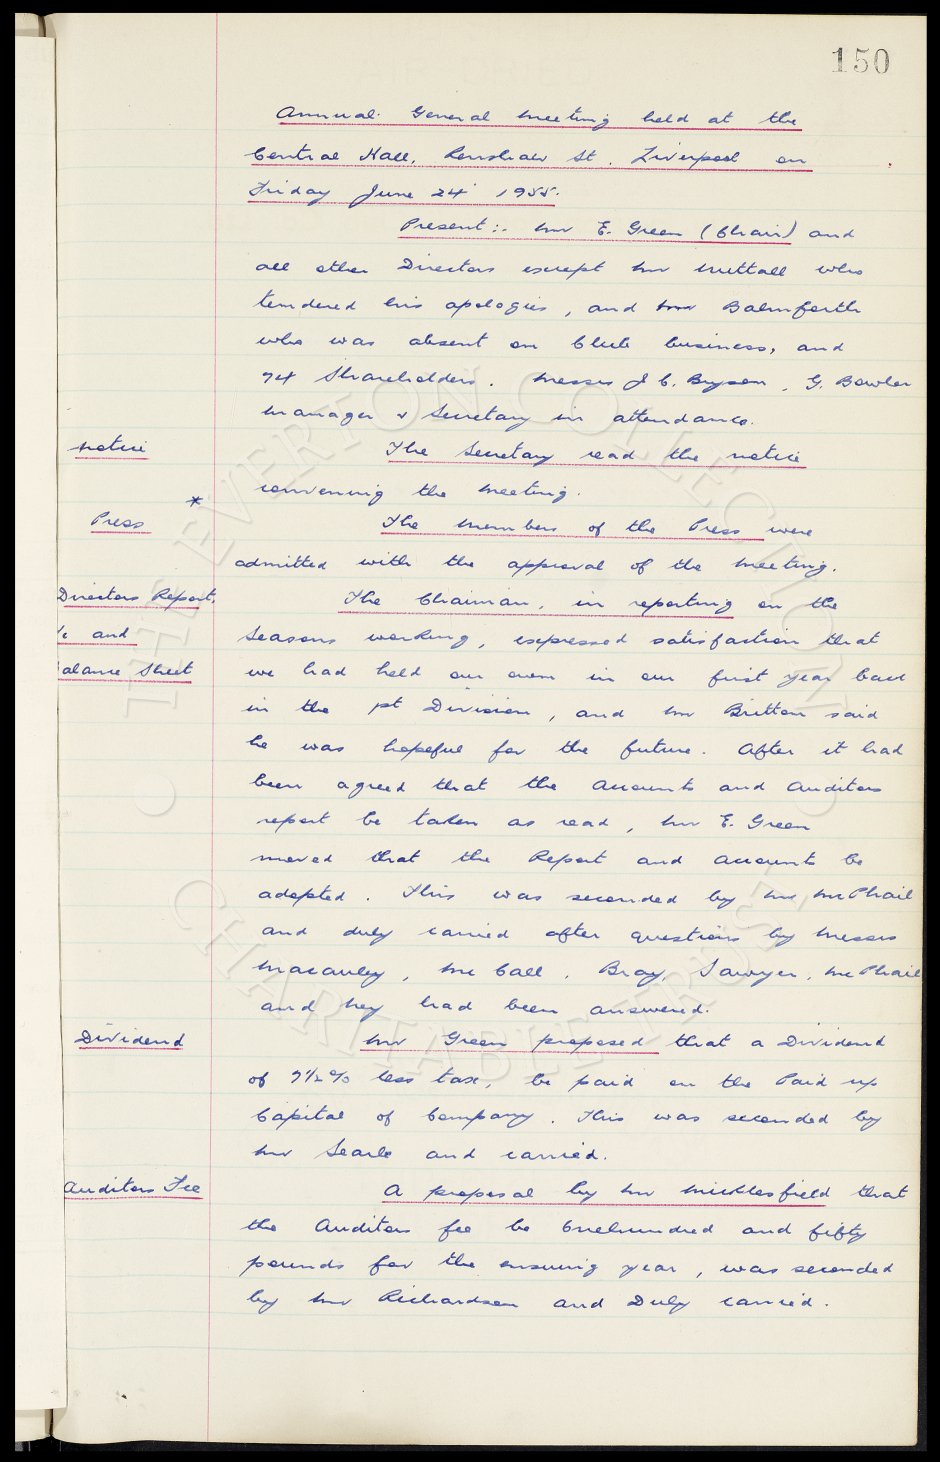 150
Annual General Meeting held at the
Central Hall, Renshaw St. Liverpool on
Friday June 24 1955.
Present:- Mr E. Green (Chair) and
all other Directors except Mr Nuttall who
tendered his apologies, and Mr Balmforth
who was absent on Club business, and
74 Shareholders. Messrs J C. Bryson, G. Bowler
Manager & Secretary in attendance.
Notice
The Secretary read the notice
convening the meeting.
*
Press
The members of the Press were
admitted with the approval of the meeting.
Directors Report,
The Chairman, in reporting on the
/c and
Seasons working, expressed satisfaction that
alance Sheet
we had held our own in our first year back
in the 1st Division, and Mr Britton said
he was hopeful for the future. After it had
been agreed that the Accounts and Auditors
report be taken as read, Mr E. Green
moved that the Report and Accounts be
adopted. This was seconded by Mr McPhail
and duly carried after questions by Messrs
Macauley, McCall, Bray, Sawyer, McPhail
and Hey had been answered.
Dividend
Mr Green proposed that a Dividend
of 7½% less tax, be paid on the Paid up
Capital of Company. This was seconded by
Mr Searle and carried.
Auditors Fee
A proposal by Mr Micklesfield that
the Auditors fee be Onehundred and fifty
pounds for the ensuing year, was seconded
by Mr Richardson and Duly carried.
THE EVERTON COLLECTION
CHARITABLE TRUST